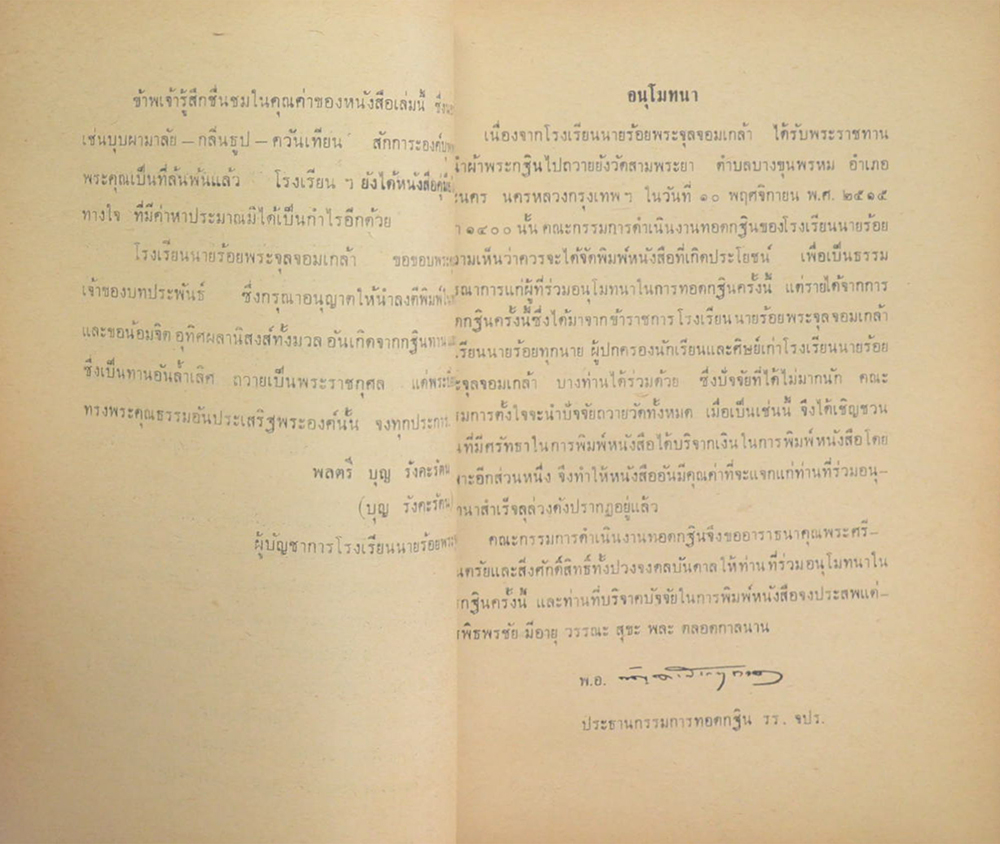 ข้าพเจ้ารู้สึกชื่นชมในคุณค่าของหนังสือเล่มนี้
เช่นบุบผามาลัย – กลิ่นธูป – ควันเทียน สักการะองค์
พระคุณเป็นที่ล้นพ้นแล้ว โรงเรียน ฯ ยังได้หนังสือ
ทางใจ ที่มีค่าหาประมาณมิได้เป็นกำไรอีกด้วย
โรงเรียนนายร้อยพระจุลจอมเกล้า ขอขอบ
เจ้าของบทประพันธ์ ซึ่งกรุณาอนุญาตให้นำลงตีพิมพ์
และขอน้อมจิต อุทิศผลานิสงส์ทั้งมวล อันเกิดจากกฐินทาน
ซึ่งเป็นทานอันล้ำเลิศ ถวายเป็นพระราชกุศล แด่
ทรงพระคุณธรรมอันประเสริฐพระองค์นั้น จงทุกประการ
พลตรี บุญ รังคะรัตน
(บุญ รังคะรัตน
ผู้บัญชาการโรงเรียนนายร้อย
อนุโมทนา
เนื่องจากโรงเรียนนายร้อยพระจุลจอมเกล้า ได้รับพระราชทาน
นำผ้าพระกฐินไปถวายยังวัดสามพระยา ตำบลบางขุนพรหม อำเภอ
นคร นครหลวงกรุงเทพ ฯ ในวันที่ ๑๐ พฤศจิกายน พ.ศ. ๒๕๑๕
๑๔๐๐ นั้น คณะกรรมการดำเนินงานทอดกฐินของโรงเรียนนายร้อย
ความเห็นว่าควรจะได้จัดพิมพ์หนังสือที่เกิดประโยชน์ เพื่อเป็นธรรม
รณาการแก่ผู้ที่ร่วมอนุโมทนาในการทอดกฐินครั้งนี้ แต่รายได้จากการ
ดกฐินครั้งนี้ซึ่งได้มาจากข้าราชการ โรงเรียนนายร้อยพระจุลจอมเกล้า
เรียนนายร้อยทุกนาย ผู้ปกครองนักเรียนและศิษย์เก่าโรงเรียนนายร้อย
ะจุลจอมเกล้า บางท่านได้ร่วมด้วย ซึ่งปัจจัยที่ได้ไม่มากนัก คณะ
รมการตั้งใจจะนำปัจจัยถวายวัดทั้งหมด เมื่อเป็นเช่นนี้ จึงได้เชิญชวน
นที่มีศรัทธาในการพิมพ์หนังสือได้บริจากเงินในการพิมพ์หนังสือโดย
พาะอีกส่วนหนึ่ง จึงทำให้หนังสืออันมีคุณค่าที่จะแจกแก่ท่านที่ร่วมอนุ–
ทนาสำเร็จลุล่วงดังปรากฏอยู่แล้ว
คณะกรรมการดำเนินงานทอดกฐินจึงขออาราธนาคุณพระศรี–
นตรัยและสิ่งศักดิ์สิทธิ์ทั้งปวงจงดลบันดาลให้ท่านที่ร่วมอนุโมทนาใน
กฐินครั้งนี้ และท่านที่บริจาคปัจจัยในการพิมพ์หนังสือจงประสพแต่–
พิธพรชัย มีอายุ วรรณะ สุขะ พละ ตลอดกาลนาน
พ.อ.
ประธานกรรมการทอดกฐิน รร. จปร.